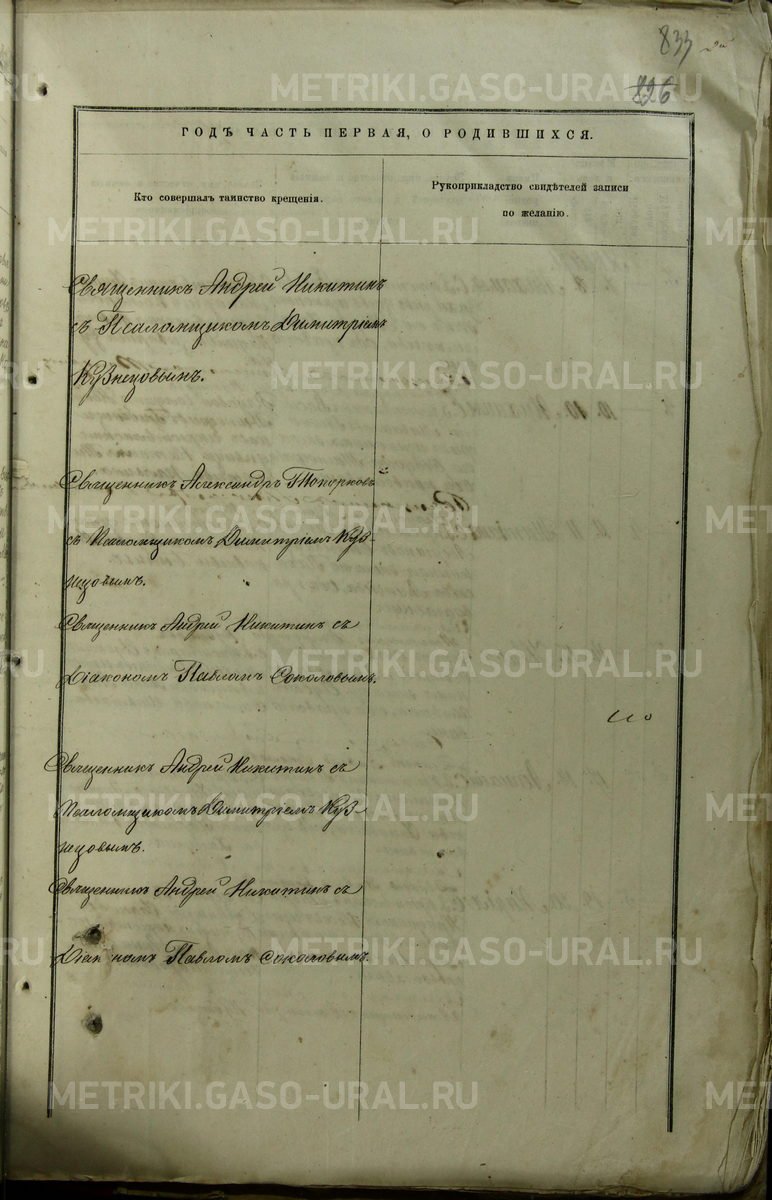 833
826
ГОДЪ ЧАСТЬ ПЕРВАЯ, О РОДИВШИХСЯ.
Кто совершалъ таинство крещенія.
Рукоприкладство свидѣтелей записи
по желанію.
Священникъ Андрей Никитинъ
съ Псаломщикомъ Димитріемъ
Кузнецовымъ.
Священникъ Александръ Топорковъ
съ Псаломщикомъ Димитріемъ Куз-
нецовымъ.
Священникъ Андрей Никитинъ съ
Діакономъ Павломъ Соколовымъ.
Священникъ Андрей Никитинъ съ
Псаломщикомъ Димитріемъ Куз-
нецовымъ.
Священникъ Андрей Никитинъ съ
Діак номъ Павломъ Соколовымъ.
METRIKI.GASO-URAL.RU